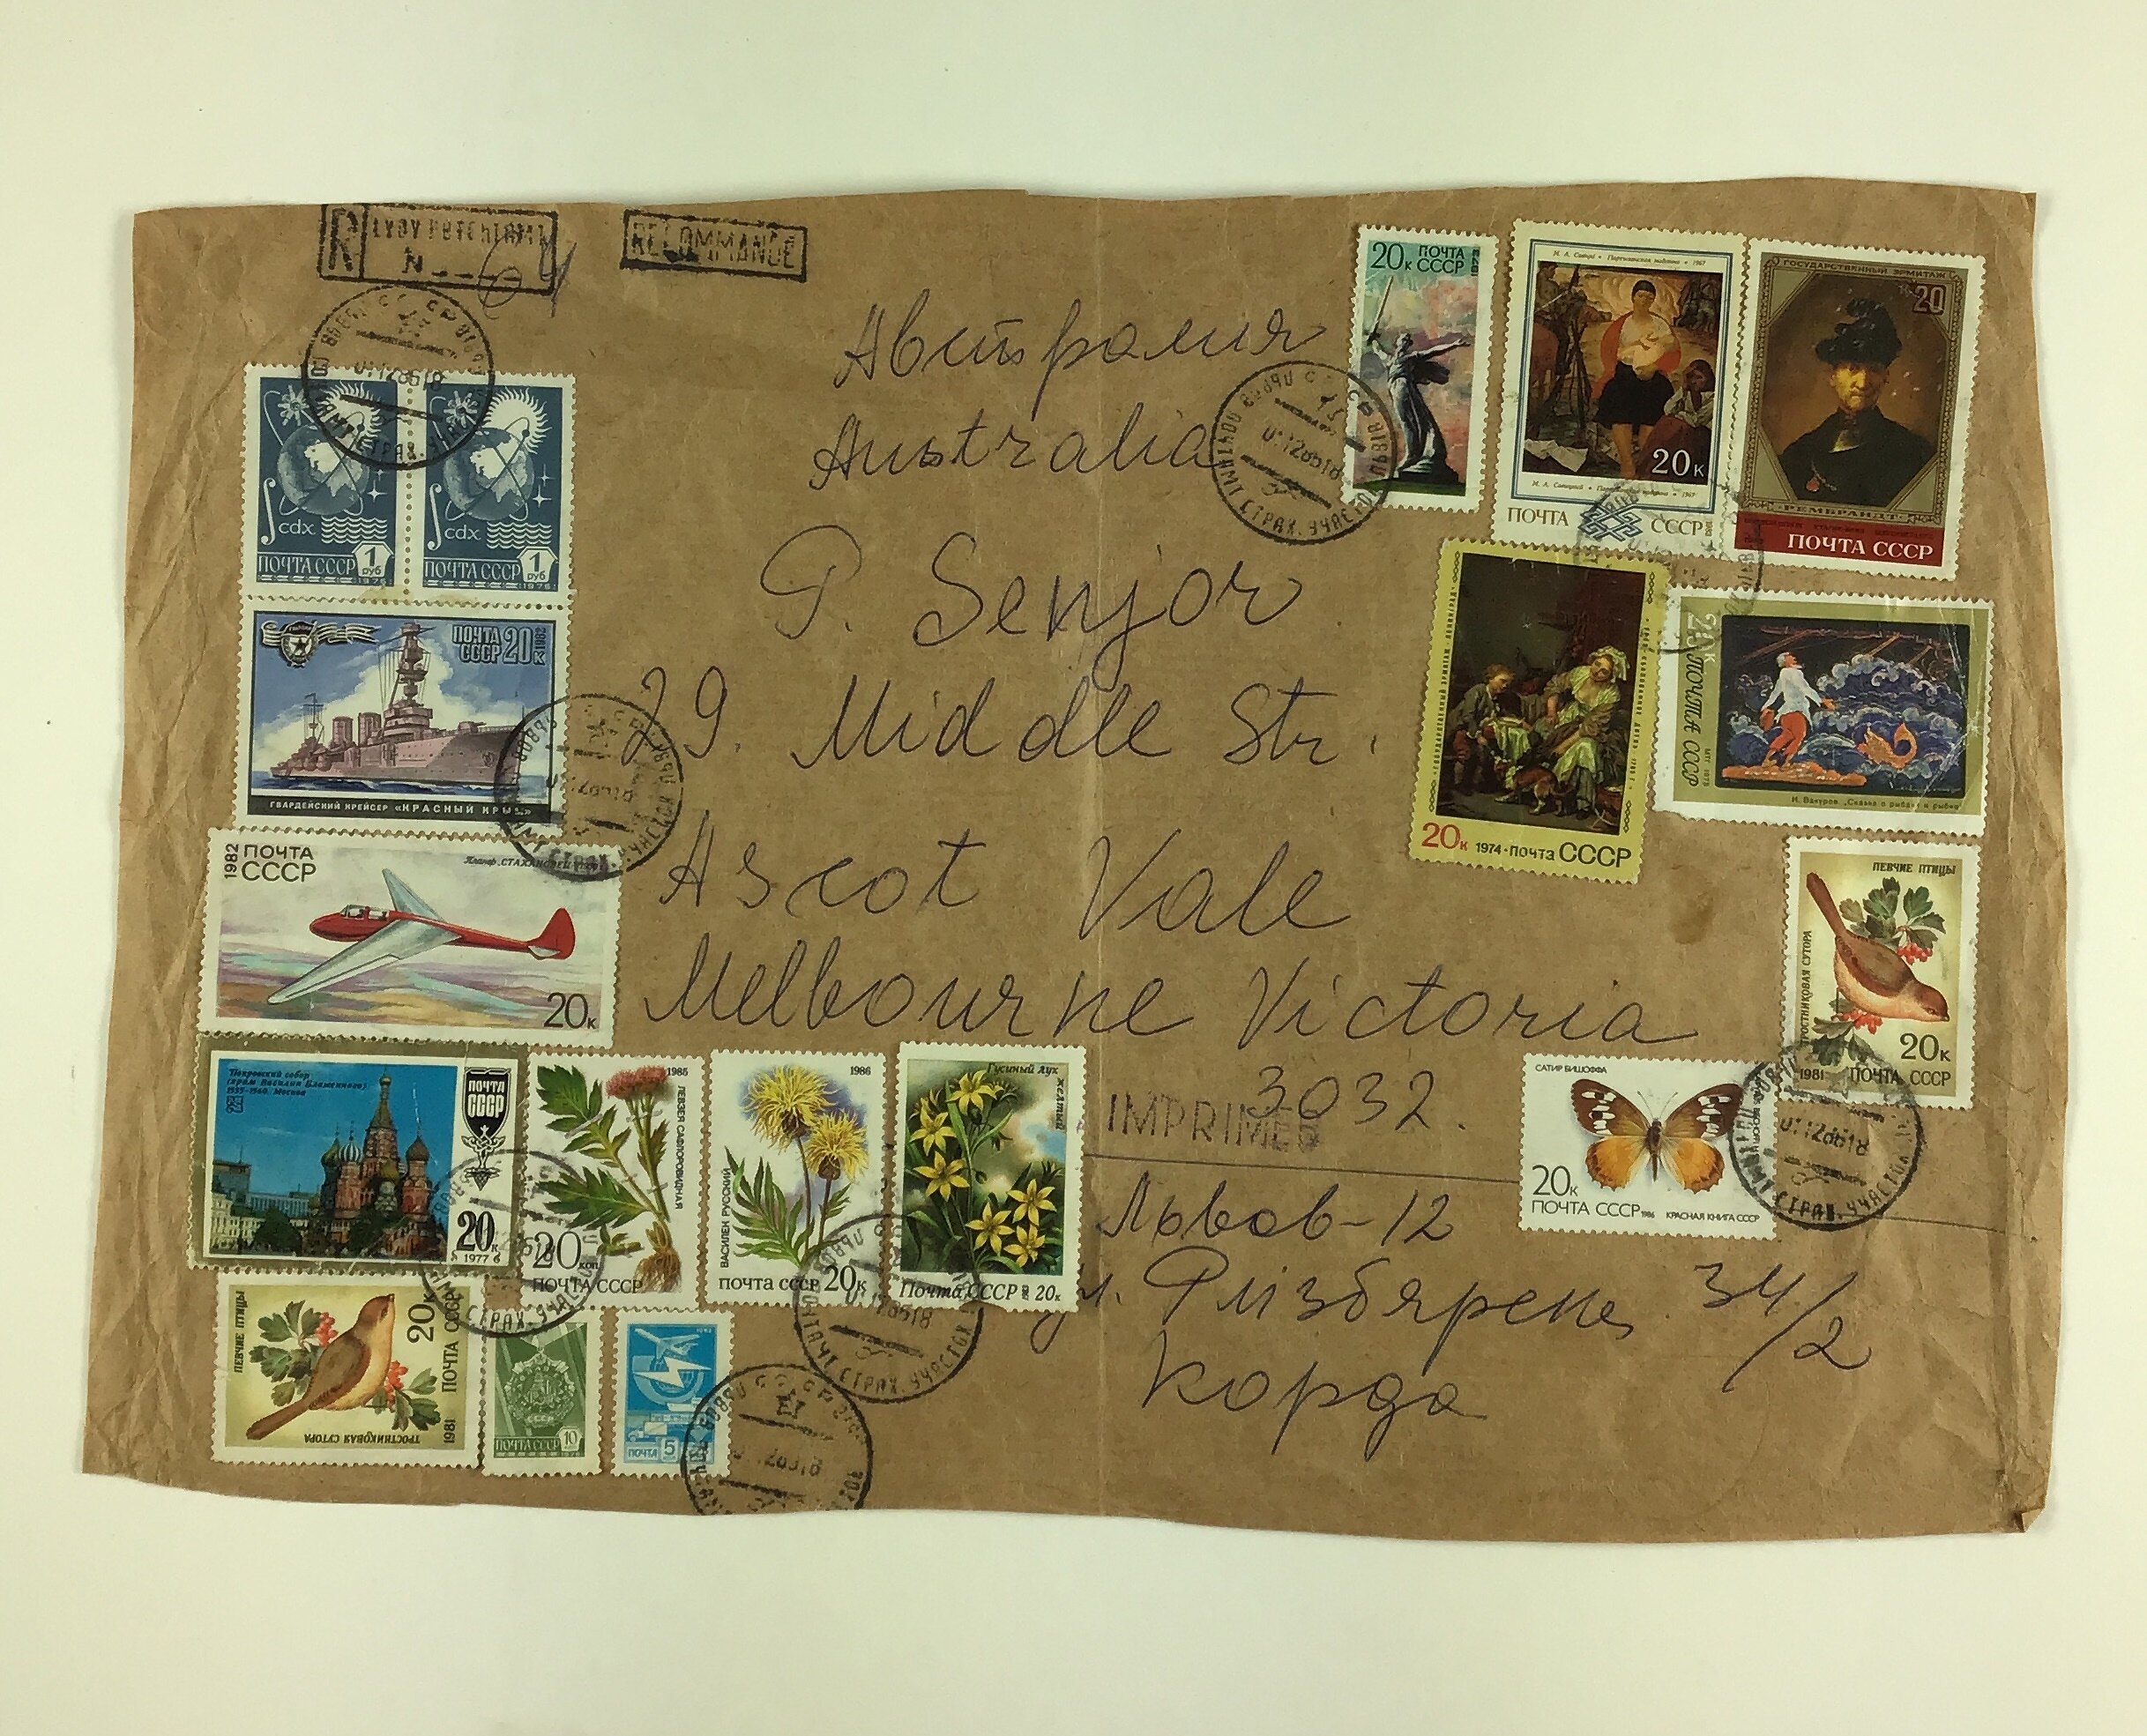 R
N 64
RECOMMANDÉ
Австралия
Australia
P. Senjor
29. Middle Str.
Ascot Vale
Melbourne Victoria
3032.
IMPRIMÉS
Львов-12
34/2
Корда
cdx
ПОЧТА СССР 1 руб
1976
cdx
ПОЧТА СССР 1 руб
1976
ПОЧТА СССР 20к 1982
ГВАРДЕЙСКИЙ КРЕЙСЕР «КРАСНЫЙ КРЫМ»
1982 ПОЧТА
СССР
20к
Покровский собор
(храм Василия Блаженного)
1555-1560. Москва
ПОЧТА
СССР
20к
1977
1985
ЛЕВЗЕЯ САФЛОРОВИДНАЯ
20 коп
ПОЧТА СССР
1986
ВАСИЛЕК РУССКИЙ
ПОЧТА СССР 20к
Гусиный лук желтый
Почта СССР 20к
ПЕВЧИЕ ПТИЦЫ
20к
ПОЧТА СССР
1981
ТРОСТНИКОВАЯ СУТОРА
СССР
ПОЧТА СССР 10
ПОЧТА 5
20к ПОЧТА
СССР
1973
20к
ПОЧТА СССР
ГОСУДАРСТВЕННЫЙ ЭРМИТАЖ
20
РЕМБРАНДТ
ПОЧТА СССР
20к 1974·ПОЧТА СССР
ПОЧТА СССР
1975
И. Вакуров. „Сказка о рыбаке и рыбке"
ПЕВЧИЕ ПТИЦЫ
ТРОСТНИКОВАЯ СУТОРА
20к
1981 ПОЧТА СССР
САТИР БИШОФФА
20к
ПОЧТА СССР 1986 КРАСНАЯ КНИГА СССР